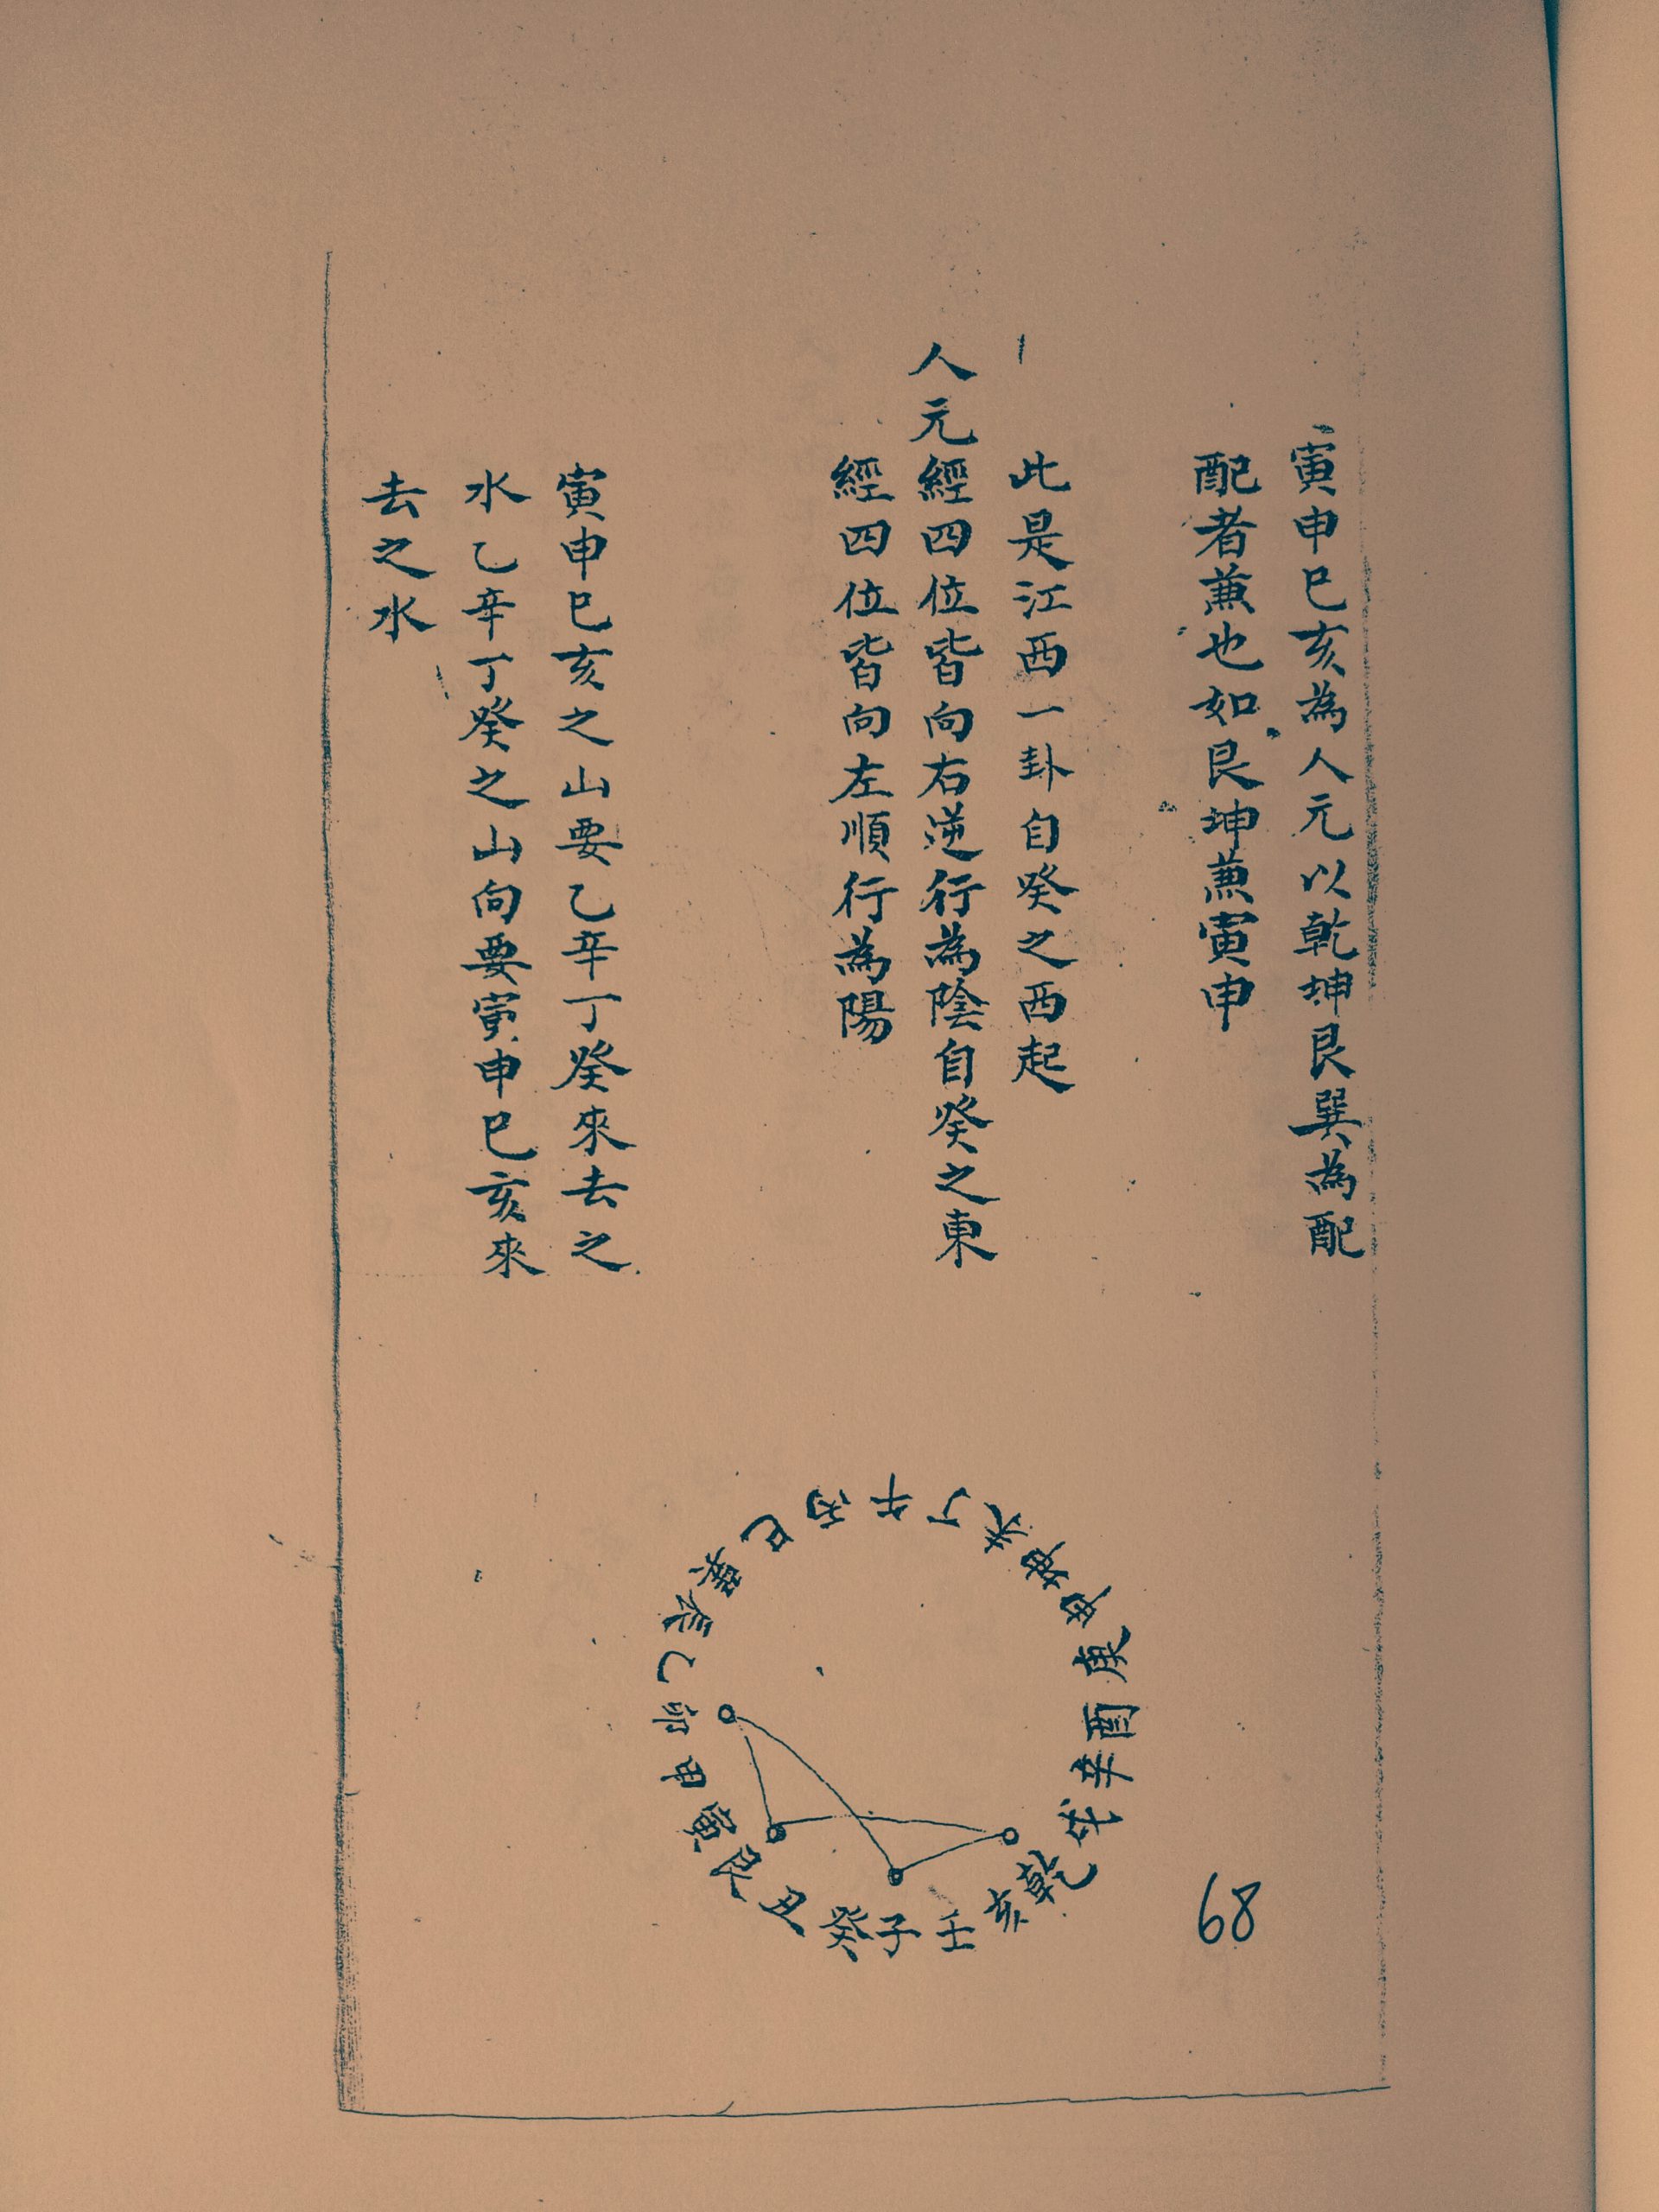 寅申巳亥為人元以乾坤艮巽為配
配者兼也如艮坤兼寅申
此是江西一卦自癸之西起
人元經四位皆向右逆行為陰自癸之東
經四位皆向左順行為陽
寅申巳亥之山要乙辛丁癸來去之
水乙辛丁癸之山向要寅申巳亥來
去之水
子癸丑艮寅甲卯乙辰巽巳丙午丁未坤申庚酉辛戌乾亥壬
68